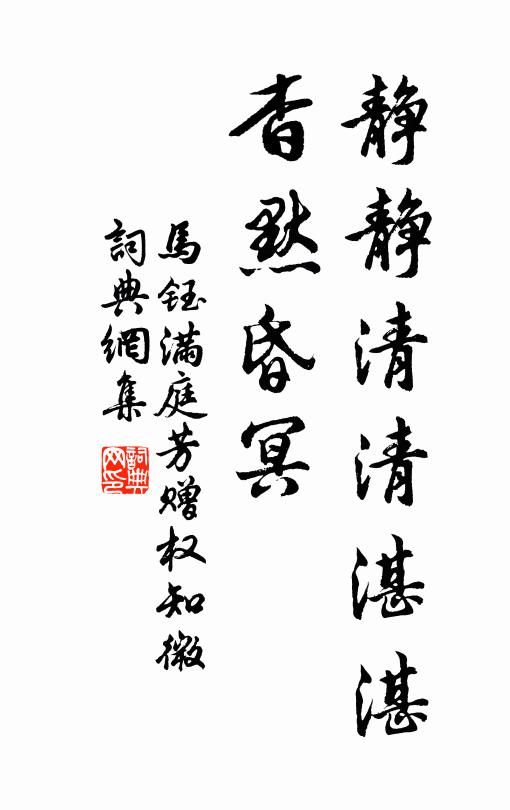 静静清清湛湛
杳默昏冥
馬鈺满庭芳赠权知微
詞典網集
詞典网印